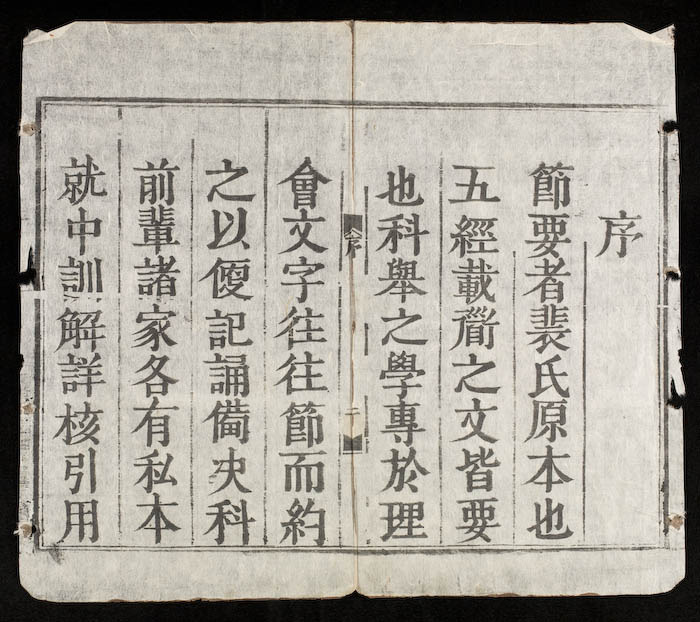 序
節要者裴氏原本也
五經載衟之文皆要
也科舉之學專於理
序
二
會文字往往節而約
之以便記誦備决科
前輩諸家各有私本
就中訓解詳核引用